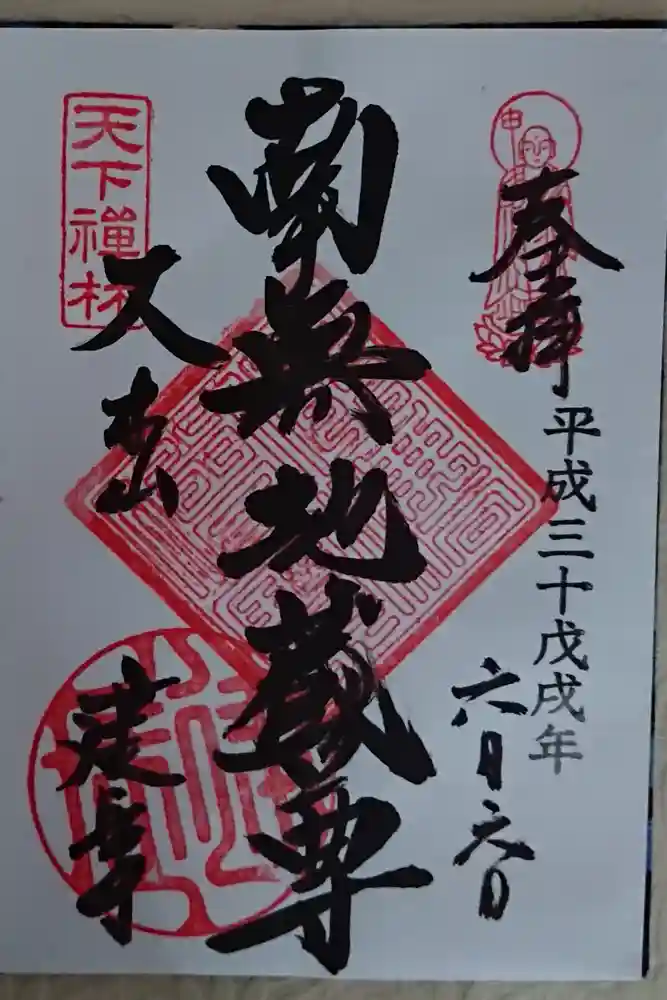 奉拝
平成三十戊戌年
六月六日
南無地蔵尊
天下禪林
建長寺